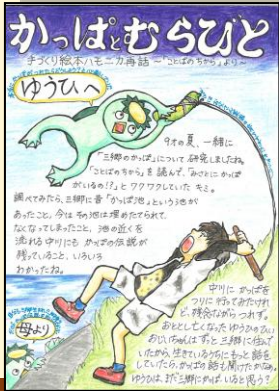 かっぱとむらびと
手づくり絵本ハモニカ再話 〜「ことばのちから」より〜
ゆうひへ
9才の夏、一緒に
「三郷のかっぱ」について研究しましたね。
「ことばのちから」を読んで、「みさとにかっぱ
がいるの!?」とワクワクしていたキミ。
調べてみたら、三郷に昔「かっぱ池」という池が
あったこと。今はその池は埋めたてられて、
なくなってしまったこと、池の近くを
流れる中川にもかっぱの伝説が
残っていること、いろいろ
わかったね。
中川にかっぱを
つりに行ってみたけれ
ど、残念ながらつれず。
おととし亡くなったゆうひのひい
おじいちゃんはずっと三郷に住んで
いたから、生きているうちにもっと話を
していたら、かっぱの話も聞けたかな。
ゆうひは、まだ三郷にかっぱ、いると思う?
母より